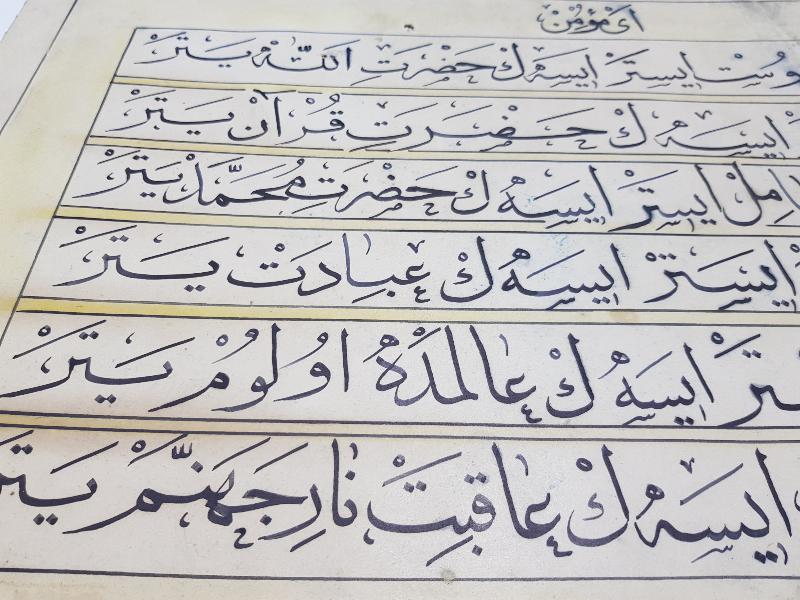 اَیْ مُؤْمِنْ
دوسْت ایسترَ ایسَه‌ڭ حَضْرَتِ اَللّٰهْ یَتَرْ
ایسَه‌ڭ حَضْرَتِ قُرْآنْ یَتَرْ
ایسْتَرْ ایسَه‌ڭ حَضْرَتِ مُحَمَّدْ یَتَرْ
ایسْتَرْ ایسَه‌ڭ عِبَادَتْ یَتَرْ
ایسَه‌ڭ عالمدَهْ اُولُومْ یَتَرْ
ایسَه‌ڭ عاقِبَتْ نارِ جَهَنَّمْ یَتَرْ